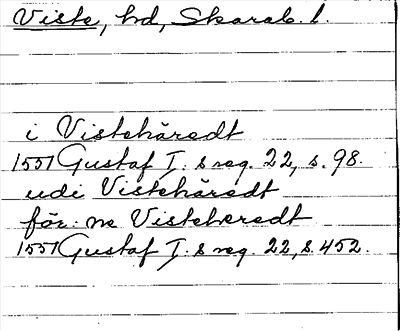 Viste, hd, Skarab. l.
i Vistehäredt
1551 Gustaf I: s reg. 22, s. 98.
udi Vistehäredt
för: ne Visteheredt
1551 Gustaf I: s reg. 22, s. 452.